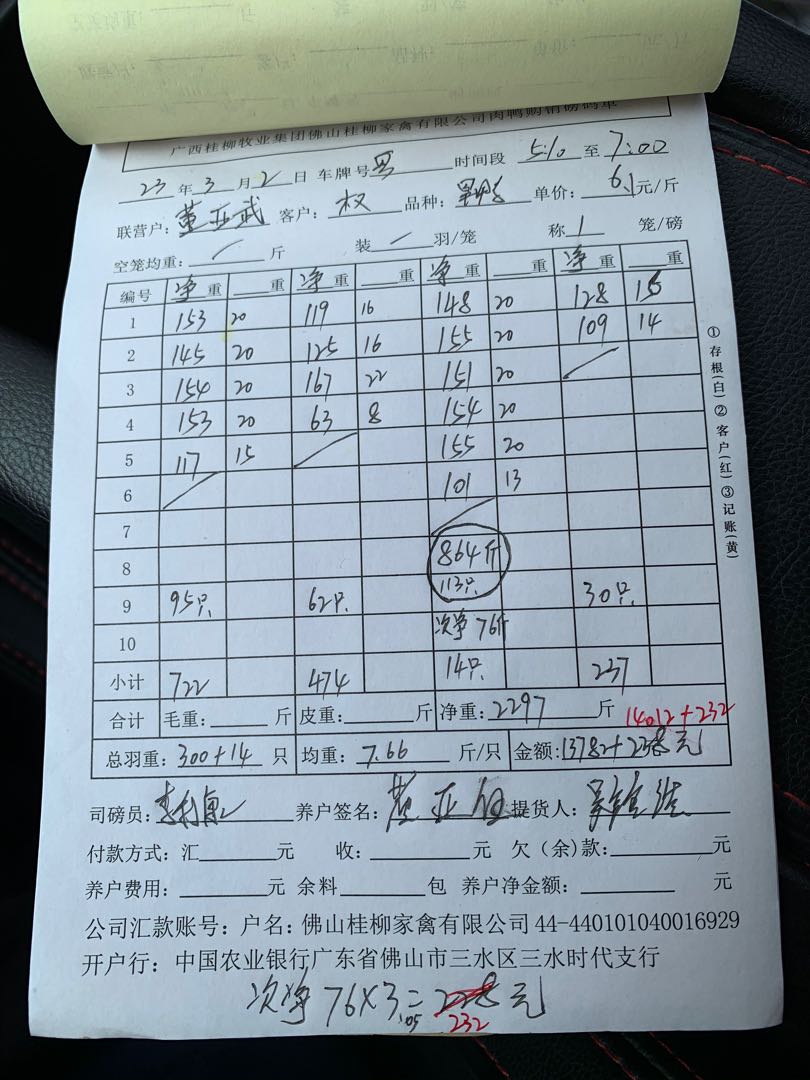 广西桂柳牧业集团佛山桂柳家禽有限公司肉鸭购销磅码单
23 年 3 月 2 日 车牌号 时间段 5:10 至 7:00
联营户: 董亚武 客户: 权 品种: 单价: 6.1 元/斤
空笼均重: / 斤 装 / 羽/笼 称 1 笼/磅
编号 净重 重 净重 重 净重 重 净重 重
1 153 20 119 16 148 20 128 15
2 145 20 125 16 155 20 109 14
3 154 20 167 22 151 20 /
4 153 20 63 8 154 20
5 117 15 / 155 20
6 / 101 13
7 /
8 864斤
113只
9 95只 62只 30只
10 次净 76斤
小计 722 474 14只 237
合计 毛重: 斤 皮重: 斤 净重: 2297 斤 14012+232
总羽重: 300+14 只 均重: 7.66 斤/只 金额: 13782+238元
司磅员: 养户签名: 提货人:
付款方式: 汇 元 收: 元 欠(余)款: 元
养户费用: 元 余料 包 养户净金额: 元
公司汇款账号: 户名: 佛山桂柳家禽有限公司 44-440101040016929
开户行: 中国农业银行广东省佛山市三水区三水时代支行
次净 76×3.05=228元
232
①存根(白)②客户(红)③记账(黄)